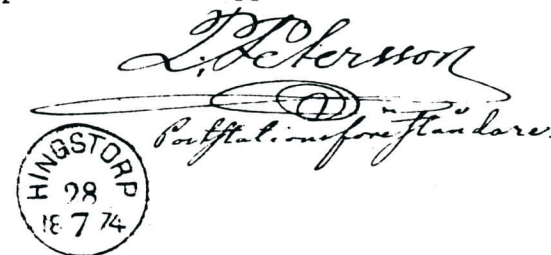 P. Petersson
Poststationsföreståndare.
HINGSTORP
28
18 7 74